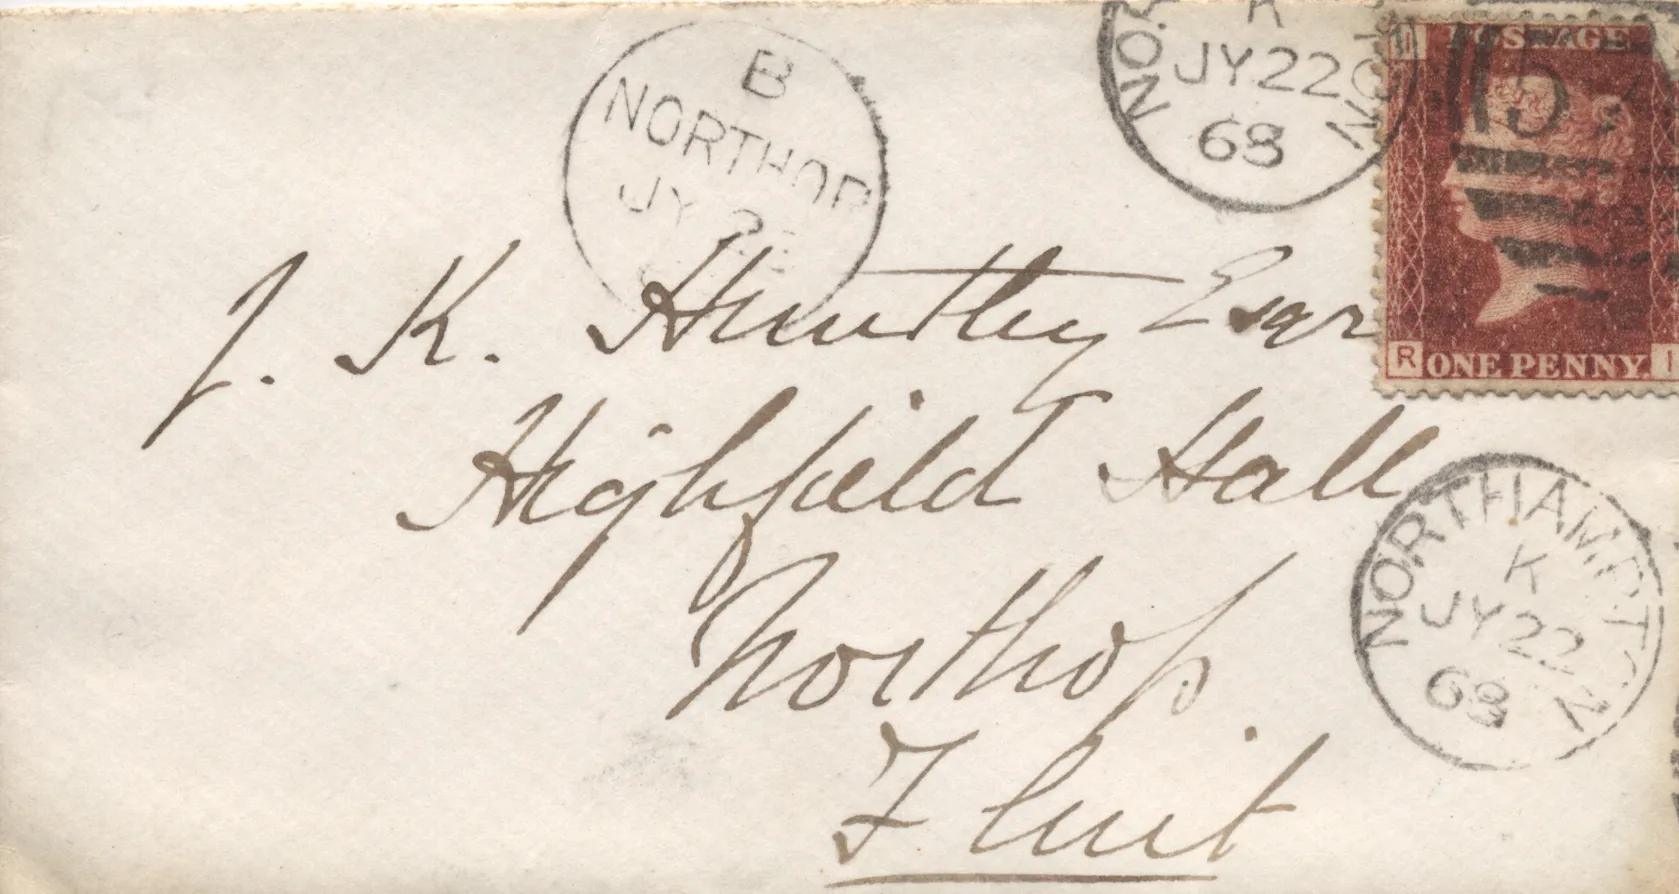 B
NORTHOP
JY 2
NOR
K
JY 22
68
ON
POSTAGE
5
R ONE PENNY. I
J. K. Huntley Esqr
Highfield Hall
Northop
Flint
NORTHAMPTON
K
JY 22
68